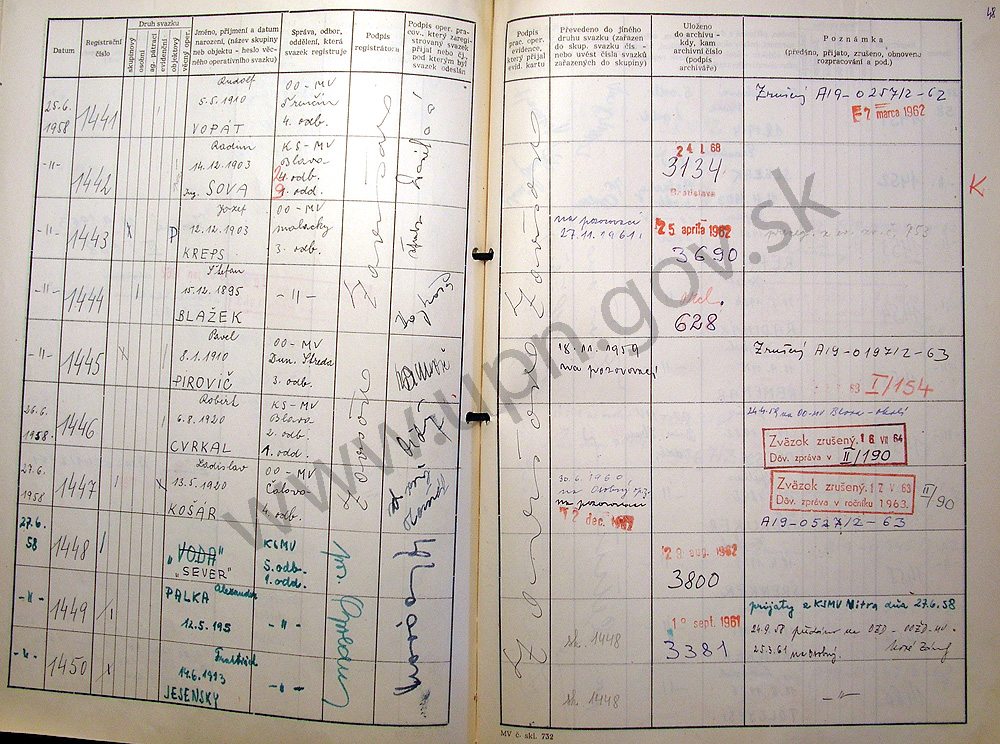 48
Datum
Registrační číslo
Druh svazku
skupinový
osobní
ag.-pátrací
evidenční
objektový
věcný oper.
Jméno, příjmení a datum narození, (název skupiny neb objektu - heslo věcného operativního svazku)
Správa, odbor, oddělení, která svazek registruje
Podpis registrátora
Podpis oper. pracov., který zaregistrovaný svazek přijal nebo čj., pod kterým byl svazek odeslán
Podpis prac. oper. evidence, který přijal evid. kartu
Převedeno do jiného druhu svazku (zařazen do skup. svazku čís - nebo uvést čísla svazků zařazených do skupiny)
Uloženo do archivu - kdy, kam archivní číslo (podpis archiváře)
Poznámka
(předáno, přijato, zrušeno, obnovena rozpracování a pod.)
25.6. 1958
1441
Rudolf
5.5.1910
VOPÁT
OO-MV
Trenčín
4. odb.
Zrušený A19-0257/2-62
7 marca 1962
-"-
1442
Radim
14.12.1903
Ing. ŠOVA
KS-MV
Blava
odb.
odd.
24 I. 68
3134
Bratislava
K
-"-
1443
x
P
Jozef
12.12.1903
KREPS
OO-MV
malacky
3. odb.
na pozorovací
27.11.1961
25 apríla 1962
3690
-"-
1444
Štefan
15.12.1895
BLAŽEK
-"-
628
-"-
1445
x
Pavel
8.1.1910
PIROVIČ
OO-MV
Dun. Streda
3. odb.
18.11.1959
na pozorovací
Zrušený A19-0197/2-63
I/154
26.6. 1958.
1446
Robert
6.8.1920
CVRKAL
KS-MV
Blava
2. odb.
1. odd.
24.4.59 na OO-MV Blava-okolí
Zväzok zrušený. 16 VII 64
Dôv. zpráva v II/190
27.6. 1958
1447
x
Ladislav
13.5.1920
KOŠÁR
OO-MV
Čalovo
4. odb.
30.6.1960
na Osobný
na pozorovací
12 dec.
Zväzok zrušený. 17 V 63
Dôv. zpráva v ročníku 1963.
II/90
A19-0527/2-63
27.6. 58
1448
"VODA"
"SEVER"
KSMV
5. odb.
1. odd.
29. aug. 1962
3800
-"-
1449
PALKA Alexander
12.5.195
-"-
sk. 1448
18 sept. 1961
3381
prijatý z KSMV Nitra dňa 27.6.58
25.3.61 na Osobný.
-"-
1450
x
14.6.1913
JESENSKÝ
-"-
sk. 1448
-"-
MV č. skl. 752
www.upn.gov.sk